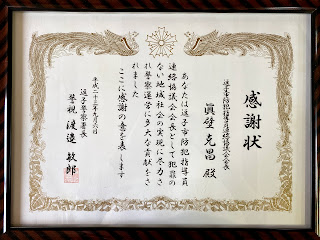 感謝状
逗子市防犯指導員連絡協議会会長
眞壁克昌 殿
あなたは逗子市防犯指導員
連絡協議会会長として犯罪の
ない地域社会の実現に尽力さ
れ警察運営に多大な貢献をさ
れました
ここに感謝の意を表します
平成二十三年九月六日
逗子警察署長
警視 渡邉 敏郎